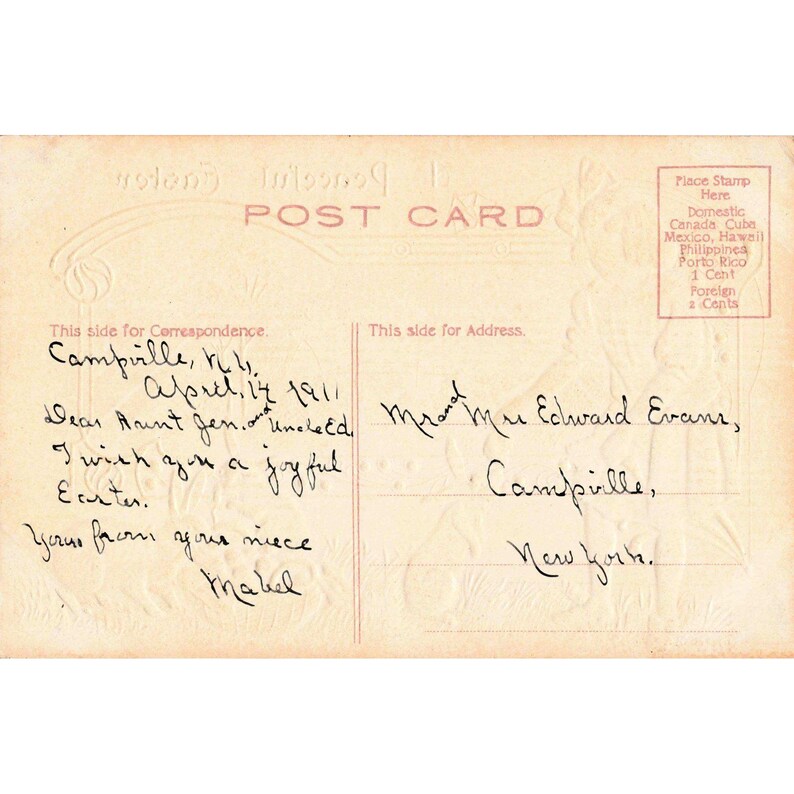 A Peaceful Easter
POST CARD
Place Stamp
Here
Domestic
Canada Cuba
Mexico, Hawaii
Philippines
Porto Rico
1 Cent
Foreign
2 Cents
This side for Correspondence.
Campville, N.Y.
April, 14 1911
Dear Aunt Jen. and Uncle Ed.
I wish you a joyful
Easter.
Yours from your niece
Mabel
This side for Address.
Mr and Mrs Edward Evans,
Campville,
New York.